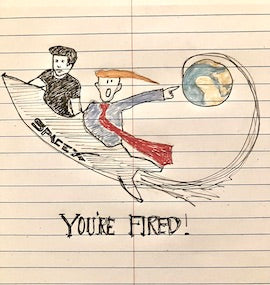 SPACEX
YOU'RE FIRED!